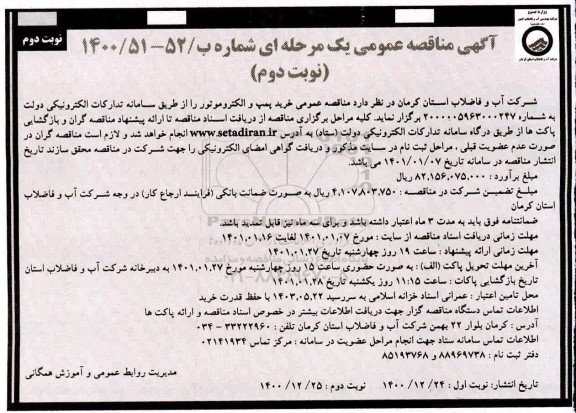 وزارت نیرو
نوبت دوم
آگهی مناقصه عمومی یک مرحله ای شماره ب/۵۲-۵۱/۱۴۰۰
(نوبت دوم)
شرکت آب و فاضلاب استان کرمان در نظر دارد مناقصه عمومی خرید پمپ و الکتروموتور را از طریق سامانه تدارکات الکترونیکی دولت
به شماره ۲۰۰۰۰۰۵۹۶۳۰۰۰۲۴۷ برگزار نماید. کلیه مراحل برگزاری مناقصه از دریافت اسناد مناقصه تا ارائه پیشنهاد مناقصه گران و بازگشایی
پاکت ها از طریق درگاه سامانه تدارکات الکترونیکی دولت (ستاد) به آدرس www.setadiran.ir انجام خواهد شد و لازم است مناقصه گران در
صورت عدم عضویت قبلی ، مراحل ثبت نام در سایت مذکور و دریافت گواهی امضای الکترونیکی را جهت شرکت در مناقصه محقق سازند تاریخ
انتشار مناقصه در سامانه تاریخ ۱۴۰۱/۰۱/۰۷ می باشد.
مبلغ برآورد : ۸۲,۱۵۶,۰۷۵,۰۰۰ ریال
مبلغ تضمین شرکت در مناقصه : ۴,۱۰۷,۸۰۳,۷۵۰ ریال به صورت ضمانت بانکی (فرایند ارجاع کار) در وجه شرکت آب و فاضلاب
استان کرمان
ضمانتنامه فوق باید به مدت ۳ ماه اعتبار داشته باشد و برای سه ماه نیز قابل تمدید باشد.
مهلت زمانی دریافت اسناد مناقصه از سایت : مورخ ۱۴۰۱,۰۱,۰۷ لغایت ۱۴۰۱,۰۱,۱۶
مهلت زمانی ارائه پیشنهاد : ساعت ۱۹ روز چهارشنبه تاریخ ۱۴۰۱,۰۱,۲۷
آخرین مهلت تحویل پاکت (الف) : به صورت حضوری ساعت ۱۵ روز چهارشنبه مورخ ۱۴۰۱,۰۱,۲۷ به دبیرخانه شرکت آب و فاضلاب استان
تاریخ بازگشایی پاکات : ساعت ۱۱:۱۵ روز یکشنبه تاریخ ۱۴۰۱,۰۱,۲۸
محل تامین اعتبار : عمرانی اسناد خزانه اسلامی به سررسید ۱۴۰۳,۰۵,۲۲ با حفظ قدرت خرید
اطلاعات تماس دستگاه مناقصه گزار جهت دریافت اطلاعات بیشتر در خصوص اسناد مناقصه و ارائه پاکت ها
آدرس : کرمان بلوار ۲۲ بهمن شرکت آب و فاضلاب استان کرمان تلفن : ۳۳۲۲۲۹۶۰ - ۰۳۴
اطلاعات تماس سامانه ستاد جهت انجام مراحل عضویت در سامانه : مرکز تماس ۰۲۱۴۱۹۳۴
دفتر ثبت نام : ۸۸۹۶۹۷۳۸ و ۸۵۱۹۳۷۶۸
مدیریت روابط عمومی و آموزش همگانی
تاریخ انتشار: نوبت اول : ۲۴ / ۱۲ / ۱۴۰۰ نوبت دوم : ۲۵ / ۱۲ / ۱۴۰۰